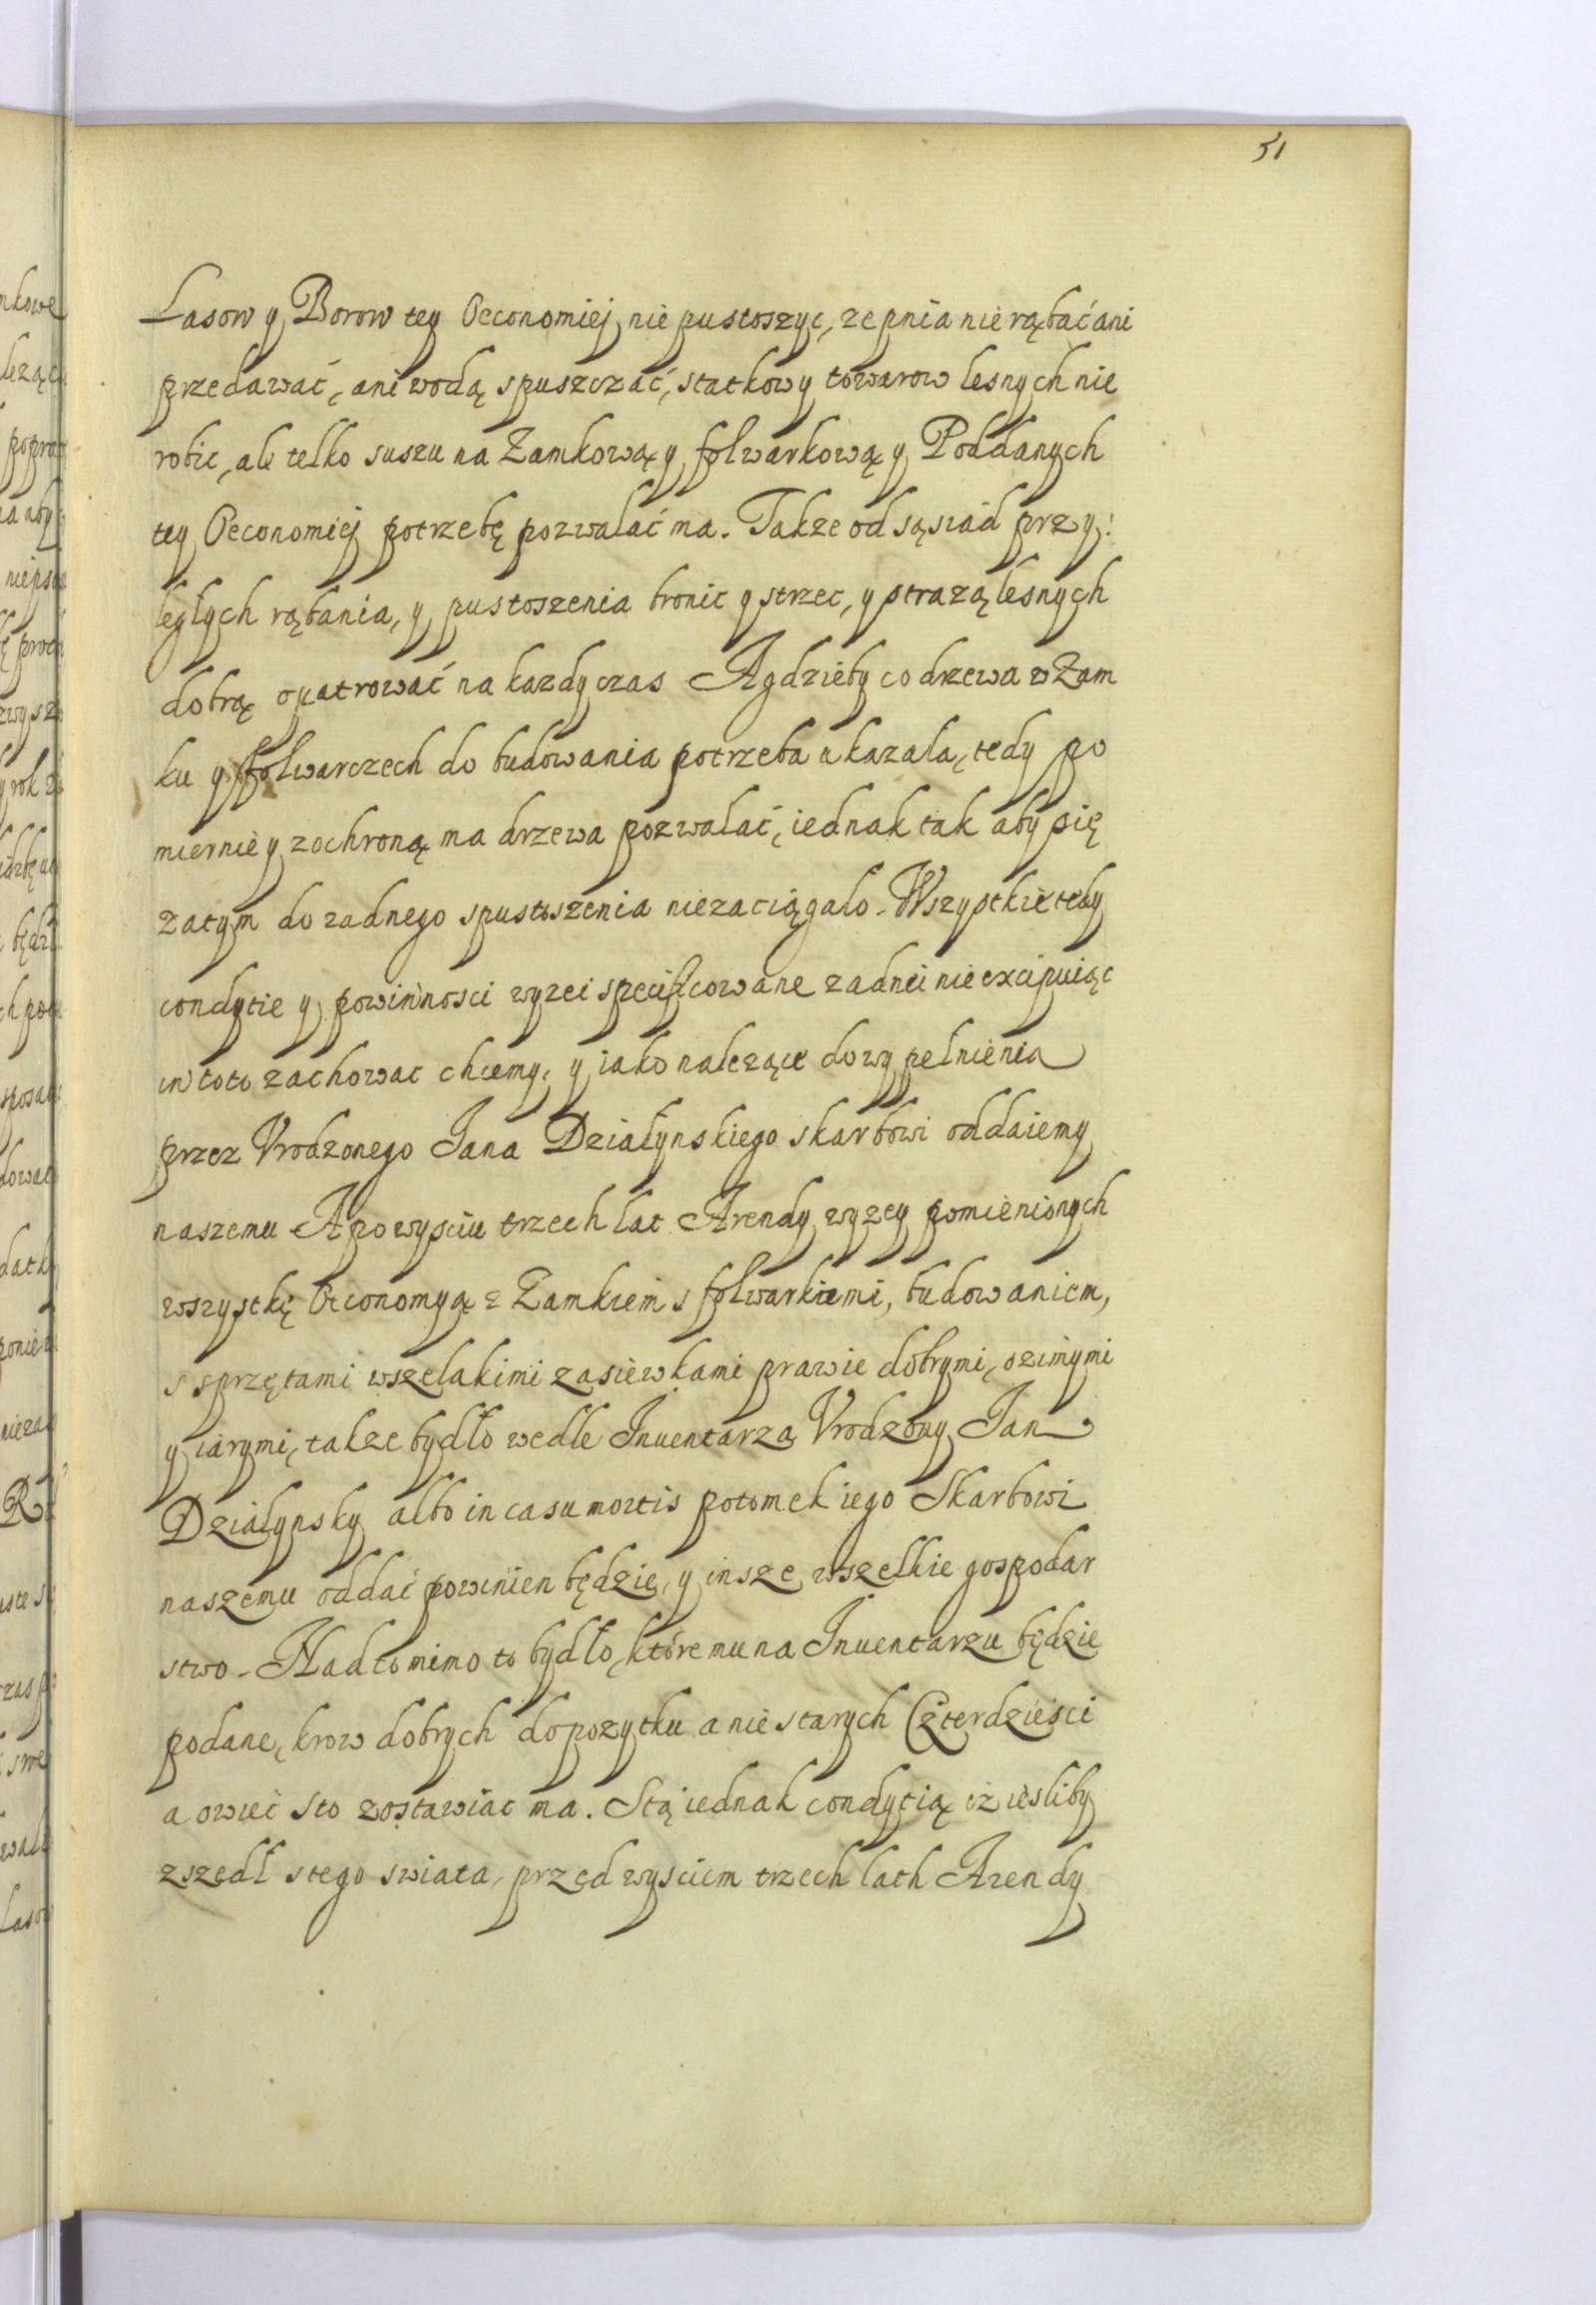 51
Lasow y Borow tey Oeconomiej nie pustoszyc, ze pnia nie rąbać ani
przedawać, ani wodą spuszczać, statkow y towarow lesnych nie
robic, ale telko suszu na Zamkową y folwarkową y Poddanych
tey Oeconomiej potrzebę pozwalać ma. Takze od sąsiad przy:
ległych rąbania, y pustoszenia bronic y strzec, y strazą lesnych
dobrą opatrować na kazdy czas A gdzieby co drzewa w Zam
ku y folwarczech do budowania potrzeba ukazala, tedy po
miernie y z ochroną ma drzewa pozwalać, iednak tak aby się
zatym do zadnego spustoszenia niezaciągalo. Wszystkie tedy
condytie y powinnosci wyzei specificowane zadnei nie excipuiąc
in toto zachowac chcemy, y iako nalezące do wypelnienia
przez Vrodzonego Jana Działynskiego skarbowi oddaiemy
naszemu A po wysciu trzech lat Arendy wyzey pomienionych
wszystkę Oeconomyą z Zamkiem s folwarkiemi, budowaniem,
s sprzętami wszelakimi zasiewkami prawie dobrymi, ozimymi
y iarymi, takze bydło wedle Inuentarza Vrodzony Jan
Działynsky albo in casu mortis potomek iego Skarbowi
naszemu oddać powinien będzie, y insze wszelkie gospodar
stwo. Nadto mimo to bydło, które mu na Inuentarzu będzie
podane, krow dobrych do pozytku a nie starych Czterdzieści
a owiec sto zostawiac ma. Stą iednak condytią iż iesliby
zszedł stego swiata, przed wysciem trzech lath Arendy